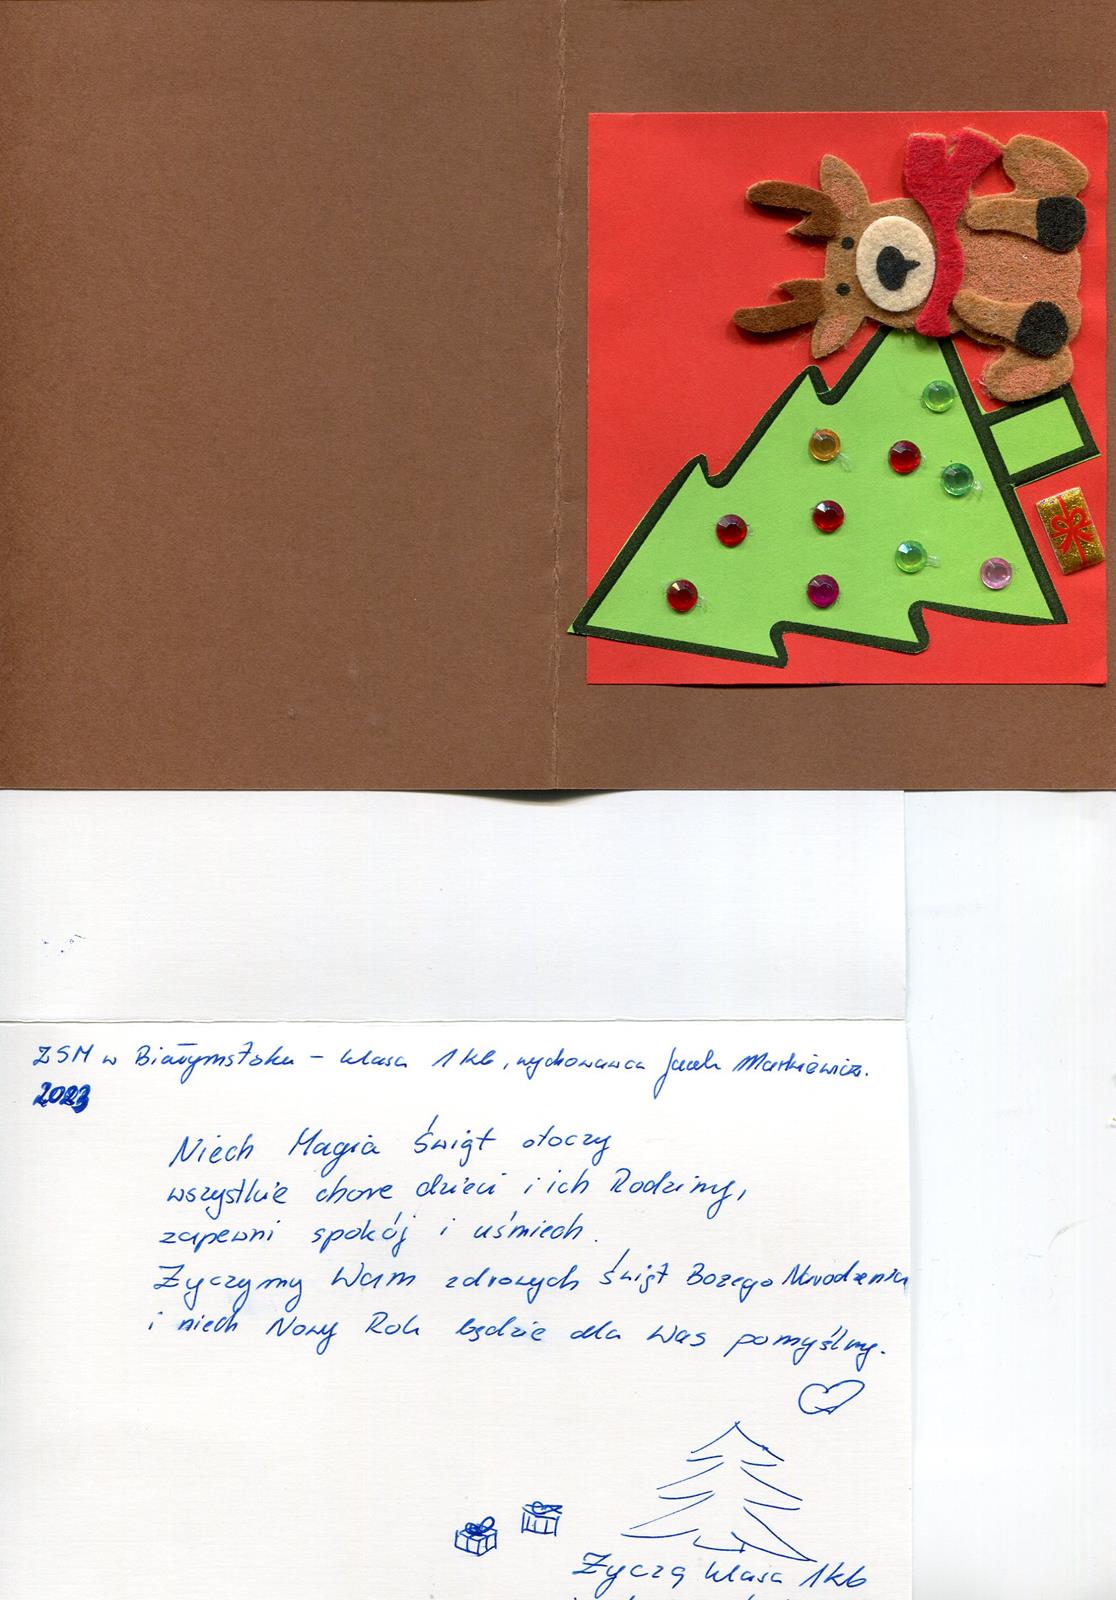 ZSM w Białymstoku - klasa 1kb, wychowawca Jacek Markiewicz.
2023
Niech Magia Świąt otoczy
wszystkie chore dzieci i ich Rodziny,
zapewni spokój i uśmiech.
Życzymy Wam zdrowych Świąt Bożego Narodzenia
i niech Nowy Rok będzie dla Was pomyślny.
Życzą klasa 1kb